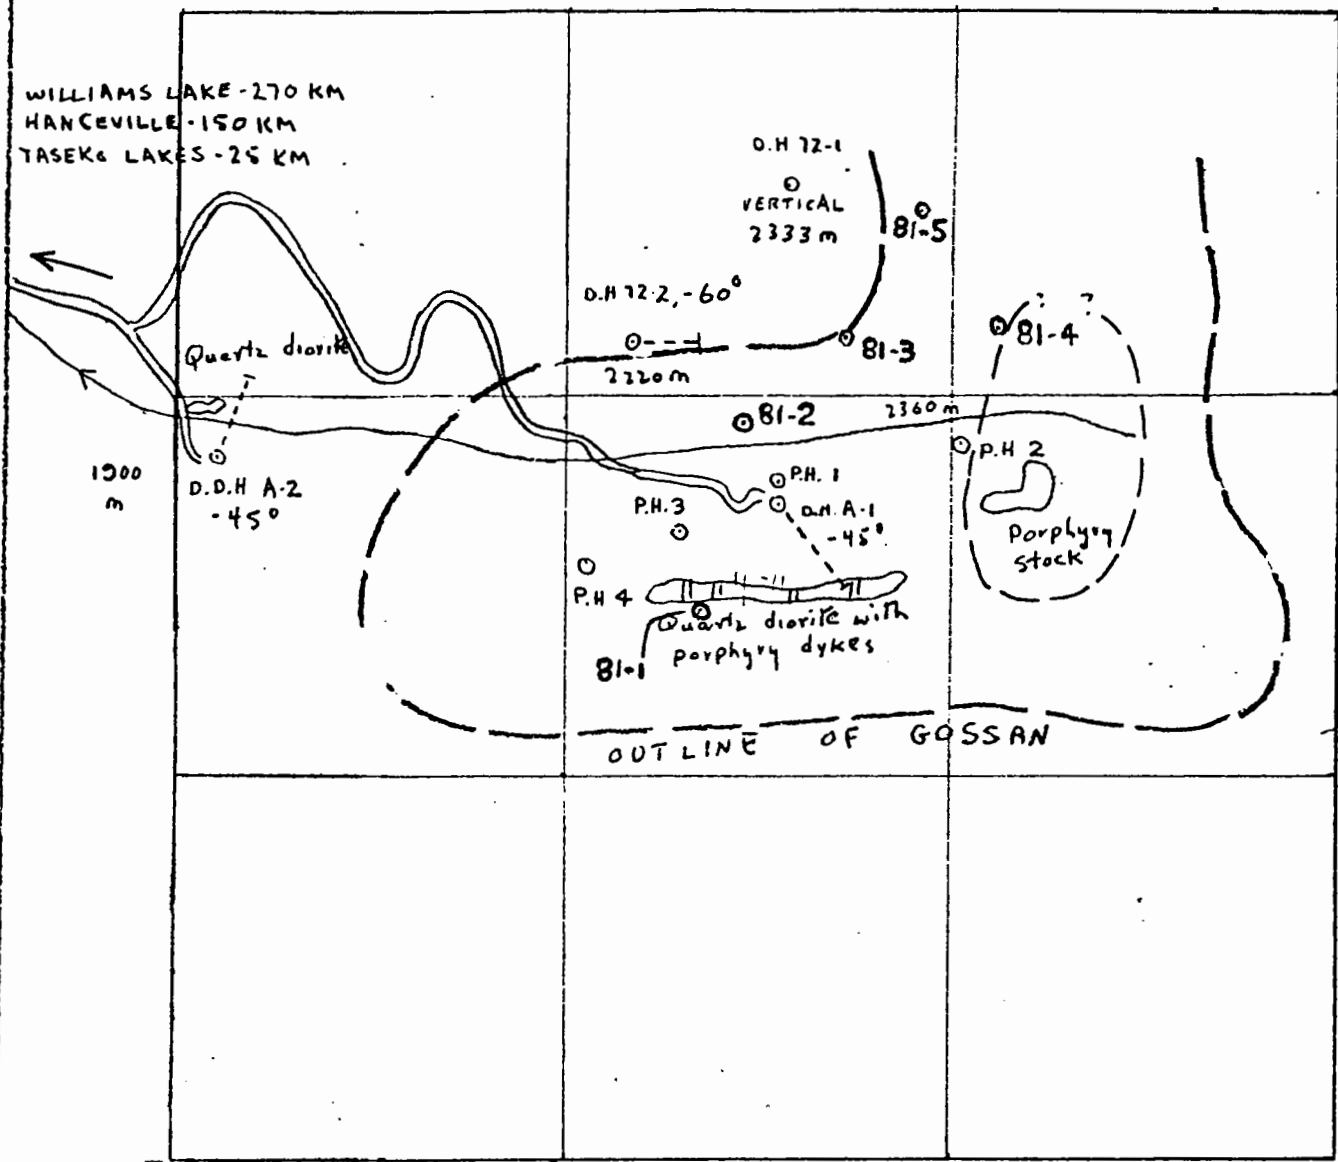 WILLIAMS LAKE - 270 KM
HANCEVILLE - 150 KM
TASEKO LAKES - 25 KM
D.H 72-1
VERTICAL
2333 m
81-5
D.H 72-2, -60°
2220 m
81-3
? ?
81-4
Quartz diorite
81-2
2360 m
P.H 2
1900
m
D.D.H A-2
-45°
P.H. 1
D.H. A-1
-45°
P.H. 3
Porphyry
stock
P.H 4
Quartz diorite with
porphyry dykes
81-1
OUTLINE OF GOSSAN